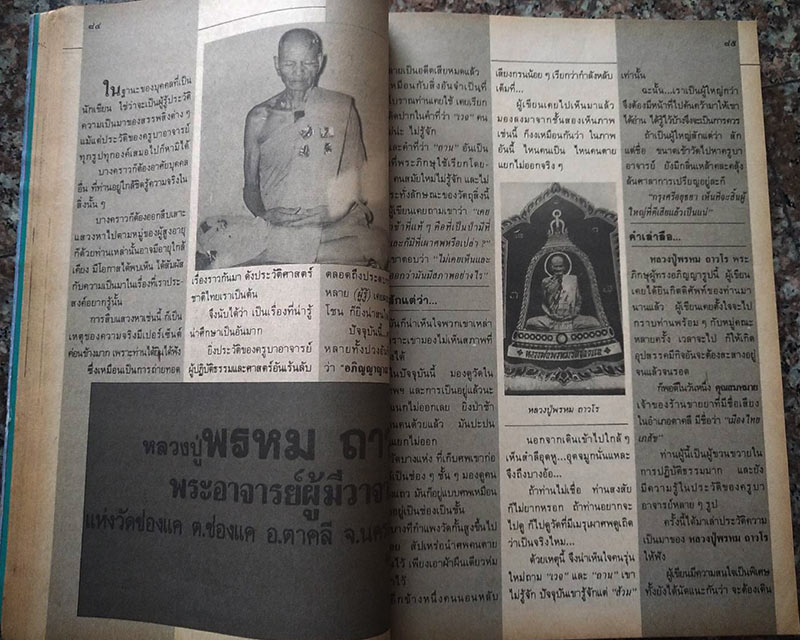 ๗๔
ในฐานะของบุคคลที่เป็น
นักเขียน ใช่ว่าจะเป็นผู้รู้ประวัติ
ความเป็นมาของสรรพสิ่งต่าง ๆ
แม้แต่ประวัติของครูบาอาจารย์
ทุกรูปทุกองค์เสมอไปก็หามิได้
บางคราวก็ต้องอาศัยบุคคล
อื่น ที่ท่านอยู่ใกล้ชิดรู้ความจริงใน
สิ่งนั้น ๆ
บางคราวก็ต้องออกสืบเสาะ
แสวงหาไปตามหมู่ของผู้สูงอายุ
ก็ด้วยท่านเหล่านั้นอาจมีอายุใกล้
เคียง มีโอกาสได้พบเห็น ได้สัมผัส
กับความเป็นมาในเรื่องที่เราประ-
สงค์อยากรู้นั้น
การสืบแสวงหาเช่นนี้ ก็เป็น
เหตุของความจริงมีเปอร์เซ็นต์
ค่อนข้างมาก เพราะท่านได้ฟัง
ซึ่งเหมือนเป็นการถ่ายทอด
เรื่องราวกันมา ดังประวัติศาสตร์
ชาติไทยเราเป็นต้น
จึงนับได้ว่า เป็นเรื่องที่น่ารู้
น่าศึกษาเป็นอันมาก
ยิ่งประวัติของครูบาอาจารย์
ผู้ปฏิบัติธรรมและศาสตร์อันเร้นลับ
ตลอดถึงประสบ
หลาย (ผู้รู้)
โชน ก็ยิ่งน่าสนใ
ปัจจุบันนี้
หลายทั้งปวงอัน
ว่า "อภิญญาณ
หลวงปู่พรหม ถา
พระอาจารย์ผู้มีวาจา
แห่งวัดช่องแค ต.ช่องแค อ.ตาคลี จ.นคร
๗๕
ลายเป็นอดีตเสียหมดแล้ว
เหมือนกับสิ่งอันจำเป็นที่
โบราณท่านเคยใช้ เคยเรียก
ติดปากในคำที่ว่า "เวจ" คน
ไม่รู้จัก
และคำที่ว่า "ถาน" อันเป็น
ที่พระภิกษุใช้เรียกโดย-
คนสมัยใหม่ไม่รู้จัก และไม่
ระทั่งลักษณะของวัตถุสิ่งนี้
ผู้เขียนเคยถามเขาว่า "เคย
ช้าที่แท้ ๆ คือที่เป็นป่ามีที่
และก็มีที่เผาศพหรือเปล่า ?"
เขาตอบว่า "ไม่เคยเห็นและ
ออกว่ามันมีสภาพอย่างไร"
ลักแต่ว่า...
มันก็น่าเห็นใจพวกเขาเหล่า
ราะเขามองไม่เห็นสภาพที่
ได้
ในปัจจุบันนี้ มองดูวัดใน
พฯ และการเป็นอยู่แล้วนะ
แยกไม่ออกเลย ยิ่งป่าช้า
นคนด้วยแล้ว มันปะปน
แยกไม่ออก
วัดบางแห่ง ที่เก็บศพเขาก่อ
เป็นช่อง ๆ ชั้น ๆ มองดูคน
แถว มันก็อยู่แบบศพเหมือน
อยู่เป็นช่องเป็นชั้น
บางที่กำแพงวัดกั้นสูงขึ้นไป
สัปเหร่อนำศพคนตาย
ไว้ เพียงเอาผ้าผืนเดียวห่ม
ไว้
อีกข้างหนึ่งคนนอนหลับ
เสียงกรนน้อย ๆ เรียกว่ากำลังหลับ
เต็มที่...
ผู้เขียนเคยไปเห็นมาแล้ว
มองลงมาจากชั้นสองเห็นภาพ
เช่นนี้ ก็งงเหมือนกันว่า ในภาพ
อันนี้ ไหนคนเป็น ไหนคนตาย
แยกไม่ออกจริง ๆ
หลวงพ่อพรหมวัดช่องแค
หลวงปู่พรหม ถาวโร
นอกจากเดินเข้าไปใกล้ ๆ
เห็นสำลีอุดหู...อุดจมูกนั่นแหละ
จึงถึงบางอ้อ...
ถ้าท่านไม่เชื่อ ท่านสงสัย
ก็ไม่ยากหรอก ถ้าท่านอยากจะ
ไปดู ก็ไปดูวัดที่มีเมรุเผาศพดูเถิด
ว่าเป็นจริงไหม...
ด้วยเหตุนี้ จึงน่าเห็นใจคนรุ่น
ใหม่ถาม "เวจ" และ "ถาน" เขา
ไม่รู้จัก ปัจจุบันเขารู้จักแต่ "ส้วม"
เท่านั้น
ฉะนั้น...เราเป็นผู้ใหญ่กว่า
จึงต้องมีหน้าที่ไปค้นคว้ามาให้เขา
ได้อ่าน ได้รู้ไว้บ้างจึงจะเป็นการควร
ถ้าเป็นผู้ใหญ่สักแต่ว่า สัก
แต่ชื่อ ขนาดเข้าวัดไปหาครูบา
อาจารย์ ยังมีกลิ่นเหล้าคละคลุ้ง
ลั่นศาลาการเปรียญอยู่ละก็
"กรุงศรีอยุธยา เห็นที่จะสิ้นผู้
ใหญ่ที่ดีเสียแล้วเป็นแน่"
คำเล่าลือ...
หลวงปู่พรหม ถาวโร พระ
ภิกษุผู้ทรงอภิญญารูปนี้ ผู้เขียน
เคยได้ยินกิตติศัพท์ของท่านมา
นานแล้ว ผู้เขียนเคยตั้งใจจะไป
กราบท่านพร้อม ๆ กับหมู่คณะ
หลายครั้ง เวลาจะไป ก็ให้เกิด
อุปสรรคมีกิจอันจะต้องสะสางอยู่
จนแล้วจนรอด
ก็พอดีในวันหนึ่ง คุณสมหมาย
เจ้าของร้านขายยาที่มีชื่อเสียง
ในอำเภอตาคลี มีชื่อว่า "เมืองไทย
เภสัช"
ท่านผู้นี้เป็นผู้ขวนขวายใน
การปฏิบัติธรรมมาก และยัง
มีความรู้ในประวัติของครูบา
อาจารย์หลาย ๆ รูป
ครั้งนี้ได้มาเล่าประวัติความ
เป็นมาของ หลวงปู่พรหม ถาวโร
ให้ฟัง
ผู้เขียนมีความสนใจเป็นพิเศษ
ทั้งยังได้นัดแนะกันว่า จะต้องเดิน